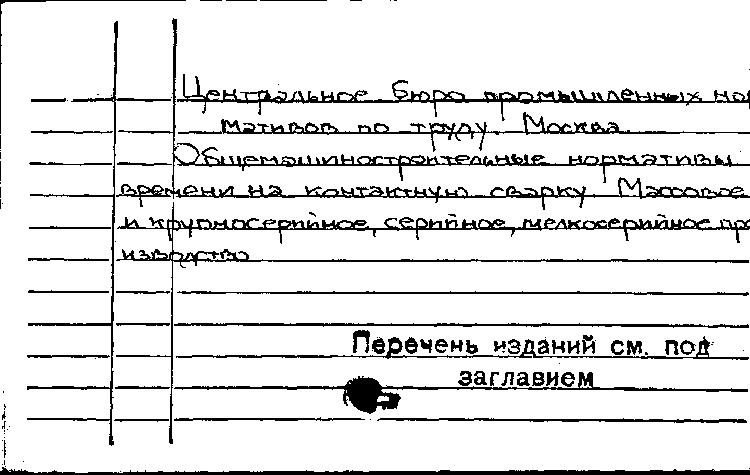 Центральное бюро промышленных нор
мативов по труду. Москва.
Общемашиностроительные нормативы
времени на контактную сварку. Массовое
и крупносерийное, серийное, мелкосерийное про
изводство
Перечень изданий см. под
заглавием